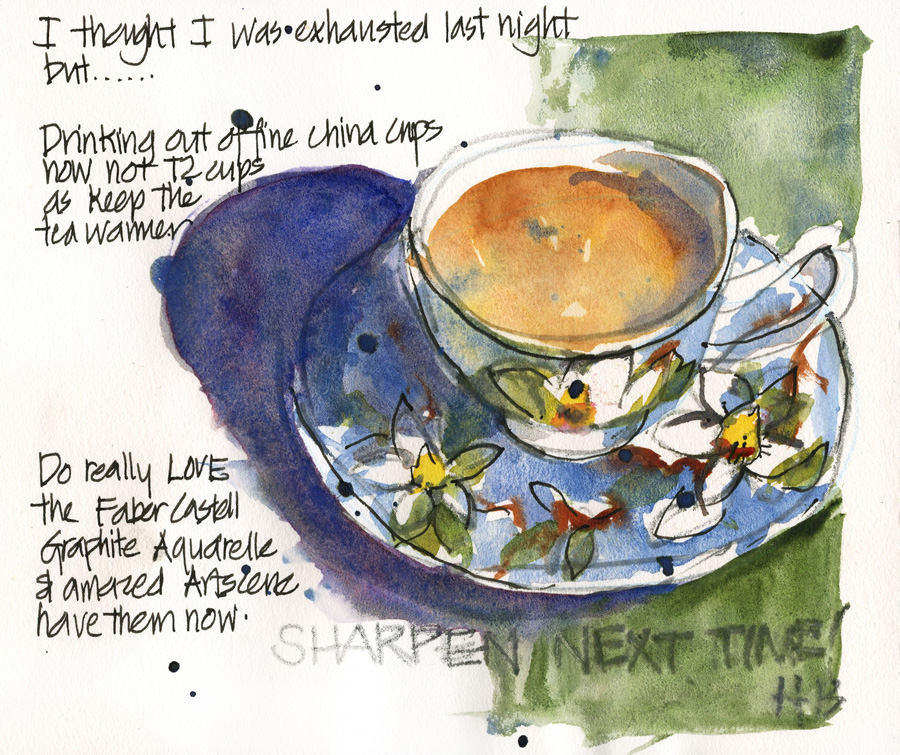 I thought I was exhausted last night
but......
Drinking out of fine china cups
now not T2 cups
as keep the
tea warmer
Do really LOVE
the Faber Castell
Graphite Aquarelle
& amazed Artscene
have them now.
SHARPEN NEXT TIME!
HB